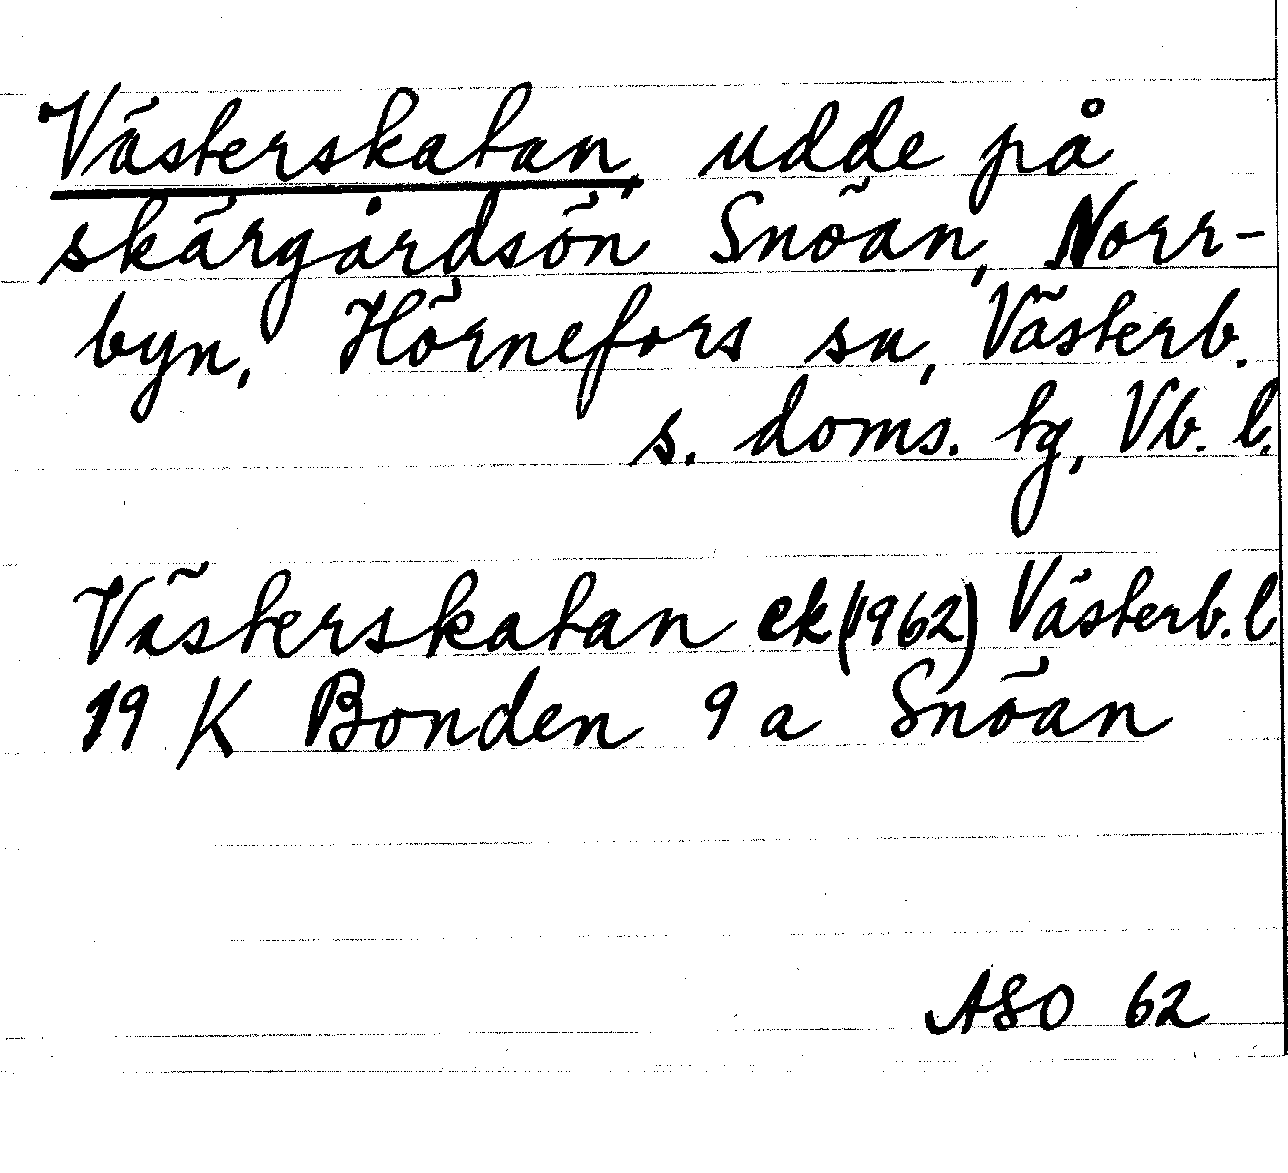 Västerskatan, udde på
skärgårdsön Snöan, Norr-
byn, Hörnefors sn, Västerb.
s. doms. tg, Vb. l.
Västerskatan ek (1962) Västerb. l
19 K Bonden 9 a Snöan
ASO 62